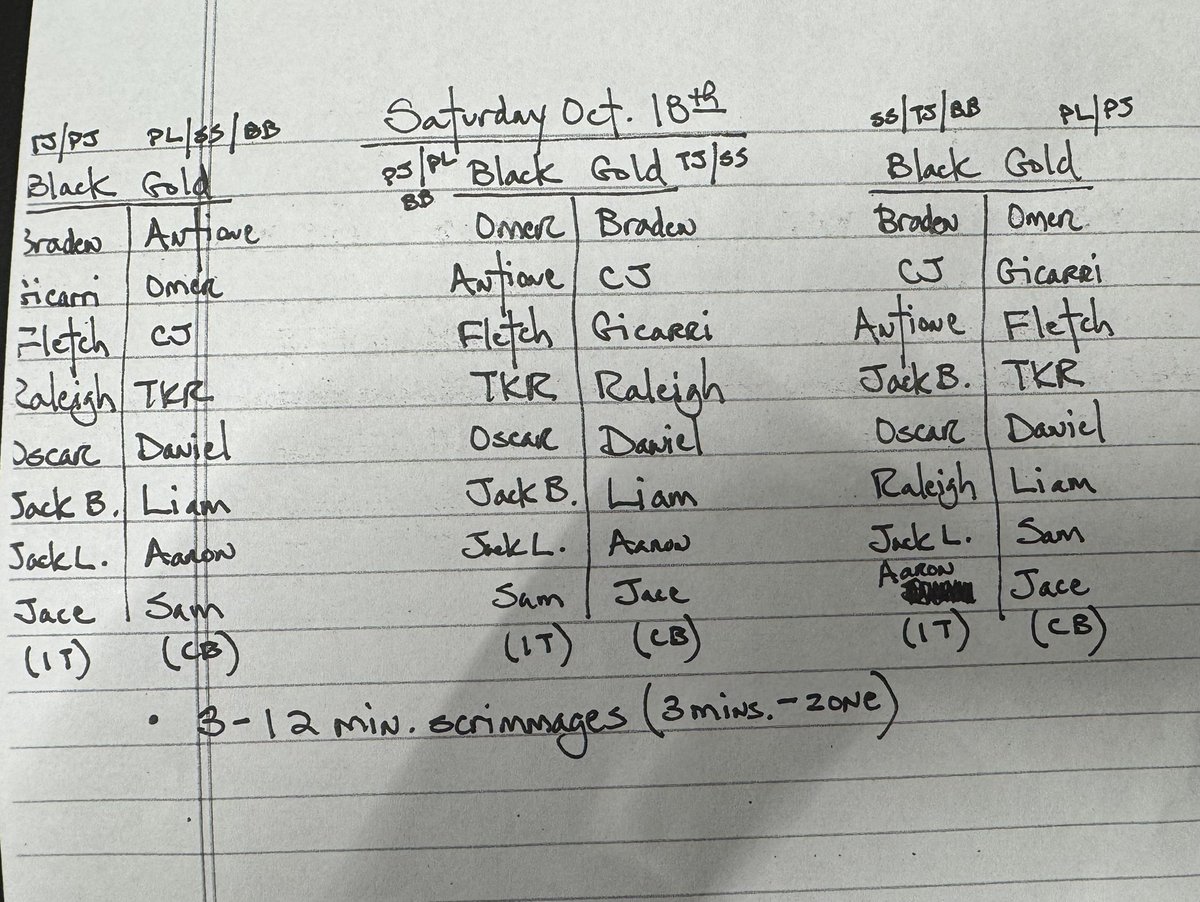 Saturday Oct. 18th
TJ/PJ PL/SS/BB
Black Gold
Braden Antione
Gicarri Omer
Fletch CJ
Raleigh TKR
Oscar Daniel
Jack B. Liam
Jack L. Aaron
Jace Sam
(1T) (CB)
PJ/PL BB Black Gold TJ/SS
Omer Braden
Antione CJ
Fletch Gicarri
TKR Raleigh
Oscar Daniel
Jack B. Liam
Jack L. Aaron
Sam Jace
(1T) (CB)
SS/TJ/BB PL/PJ
Black Gold
Braden Omer
CJ Gicarri
Antione Fletch
Jack B. TKR
Oscar Daniel
Raleigh Liam
Jack L. Sam
Aaron Jace
(1T) (CB)
• 3-12 min. scrimmages (3 mins. - zone)